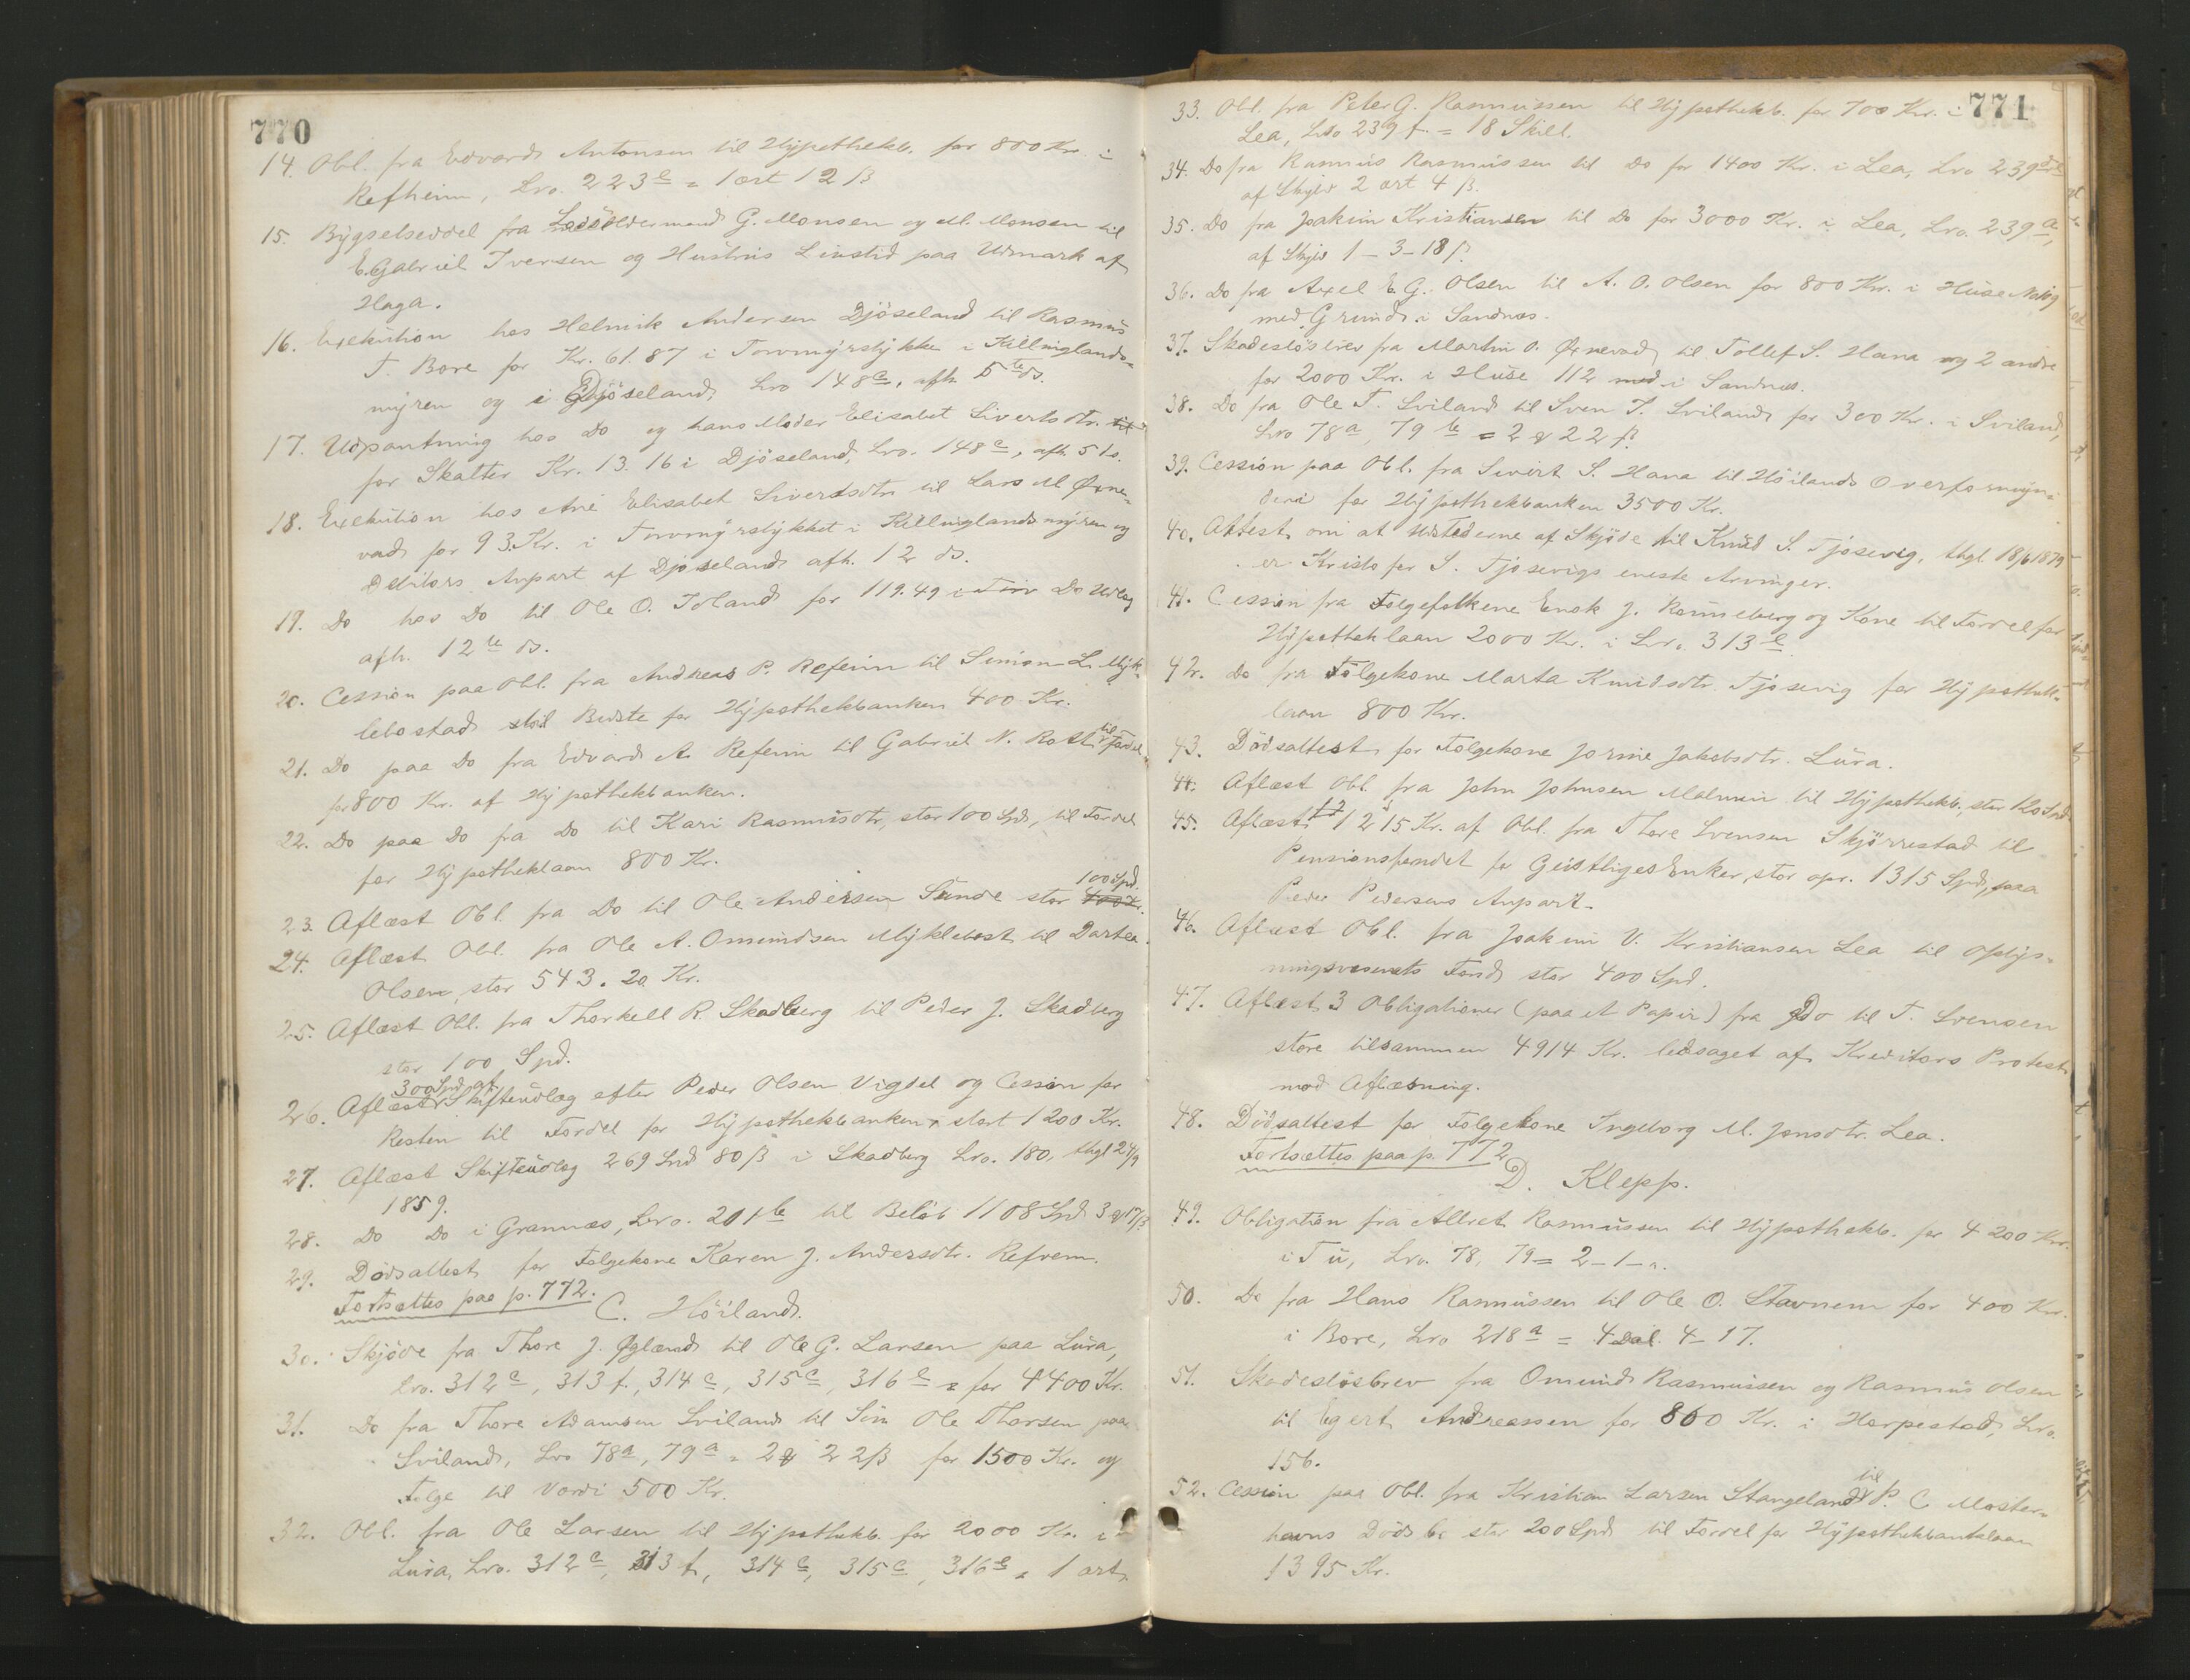 770
14. Obl. fra Edvard Antonsen til Hypothekb. for 800 Kr. i
Refheim, Lvo. 223 e = 1 ort 12 β
15. Bygselseddel fra Lodsoldermand G. Monsen og M. Monsen til
E. Gabriel Iversen og Hustrus Livstid paa Udmark af
Haga.
16. Exekution hos Helmik Andersen Djöseland til Rasmus
T. Bore for Kr. 61.87 i Torvmyrstykke i Killinglands-
myren og i Djöseland, Lvo 148 c, afh. 5te ds.
17. Udpantning hos Do og hans Moder Elisabet Sivertsdtr. til
for Skatter Kr. 13.16 i Djöseland, Lvo. 148 c, afh. 5 ds.
18. Exekution hos Ane Elisabet Sivertsdtr. til Lars M. Øxne-
vad for 93 Kr. i Torvmyrstykket i Killinglandsmyren og
Debitors Anpart af Djöseland afh. 12 ds.
19. Do hos Do til Ole O. Idland for 119.49 i Torv Do Udlæg
afh. 12te ds.
20. Cession paa Obl. fra Andreas P. Refeim til Simon L. Myk-
lebostad til Bedste for Hypothekbanken 400 Kr.
21. Do paa Do fra Edvard A. Refeim til Gabriel N. Rott til Fordel
for 800 Kr. af Hypothekbanken.
22. Do paa Do fra Do til Kari Rasmusdtr, stor 100 Spd, til Fordel
for Hypotheklaan 800 Kr.
23. Aflæst Obl. fra Do til Ole Andersen Sunde stor 400 Kr. 100 Spd.
24. Aflæst Obl. fra Ole A. Omundsen Myklebost til Dortea
Olsen, stor 543.20 Kr.
25. Aflæst Obl. fra Thorkell R. Skadberg til Peder J. Skadberg
stor 100 Spd.
26. Aflæst 300 Spd af Skifteudlæg efter Peder Olsen Vigdel og Cession for
Resten til Fordel for Hypothekbanken, stort 1200 Kr.
27. Aflæst Skifteudlæg 269 Spd 80 β i Skadberg Lvo. 180, thgl 24/9
1859.
28. Do Do i Grannæs, Lvo. 201 b til Beløb 1108 Spd 3 ort 17 β
29. Dødsattest for Folgekone Karen J. Andersdtr. Refvem.
Fortsættes paa p. 772.
C. Höiland.
30. Skjöde fra Thore J. Øglænd til Ole G. Larsen paa Lura,
Lvo. 312 c, 313 f, 314 c, 315 c, 316 e = for 4400 Kr.
31. Do fra Thore Adamsen Sviland til Sön Ole Thorsen paa
Sviland, Lvo 78 a, 79 a = 2 ort 22 β for 1500 Kr. og
Folge til Værdi 500 Kr.
32. Obl. fra Ole Larsen til Hypothekb. for 2000 Kr. i
Lura, Lvo. 312 c, 313 f, 314 c, 315 c, 316 e = 1 ort
771
33. Obl. fra Peter G. Rasmussen til Hypothekb. for 700 Kr. i
Lea, Lvo 239 f. = 18 Skill.
34. Do fra Rasmus Rasmussen til Do for 1400 Kr. i Lea, Lvo 239 d, e
af Skyld 2 ort 4 β.
35. Do fra Joakim Kristiansen til Do for 3000 Kr. i Lea, Lvo. 239 a,
af Skyld 1 - 3 - 18 β.
36. Do fra Axel E. G. Olsen til A. O. Olsen for 800 Kr. i Huse No 169
med Grund i Sandnæs.
37. Skadeslösbrev fra Martin O. Øxnevad til Tollef S. Hana og 2 andre
for 2000 Kr. i Huse 112 med i Sandnæs.
38. Do fra Ole T. Sviland til Sven T. Sviland for 300 Kr. i Sviland,
Lvo 78 a, 79 b = 2 ort 22 β
39. Cession paa Obl. fra Sivert S. Hana til Höilands Overformyn-
deri for Hypothekbanken 3500 Kr.
40. Attest om at Udstederne af Skjöde til Knud S. Tjosevig, thgl. 18/6 1879
er Kristofer S. Tjosevigs eneste Arvinger.
41. Cession fra Folgefolkene Enok J. Ronneberg og Kone til Fordel for
Hypotheklaan 2000 Kr. i Lvo. 313 e.
42. Do fra Folgekone Marta Knudsdtr. Tjosevig for Hypothek-
laan 800 Kr.
43. Dödsattest for Folgekone Jorine Jakobsdtr. Lura.
44. Aflæst Obl. fra John Johnsen Malmin til Hypothekb, stor 120 Spd
45. Aflæst 1215 Kr. af Obl. fra Thore Svensen Skjörrestad til
Pensionsfondet for Geistliges Enker, stor opr. 1315 Spd, paa
Peder Pedersens Anpart.
46. Aflæst Obl. fra Joakim V. Kristiansen Lea til Oplys-
ningsvæsenets Fond stor 400 Spd.
47. Aflæst 3 Obligationer (paa et Papir) fra Do til T. Svensen
store tilsammen 4914 Kr. ledsaget af Kreditors Protest
mod Aflæsning.
48. Dödsattest for Folgekone Ingeborg M. Jonsdtr. Lea.
Fortsættes paa p. 772
D. Klepp.
49. Obligation fra Albret Rasmussen til Hypothekb. for 4200 Kr.
i Tu, Lvo. 78, 79 = 2 - 1 - ".
50. Do fra Hans Rasmussen til Ole O. Stavnem for 400 Kr.
i Bore, Lvo 218 a = 4 Dal. 4 - 17.
51. Skadeslösbrev fra Omund Rasmussen og Rasmus Olsen
til Egert Andreassen for 860 Kr. i Horpestad, Lvo.
156.
52. Cession paa Obl. fra Kristian Larsen Stangeland til P. C. Moster-
havns Dödsbo stor 200 Spd til Fordel for Hypothekbanklaan
1395 Kr.